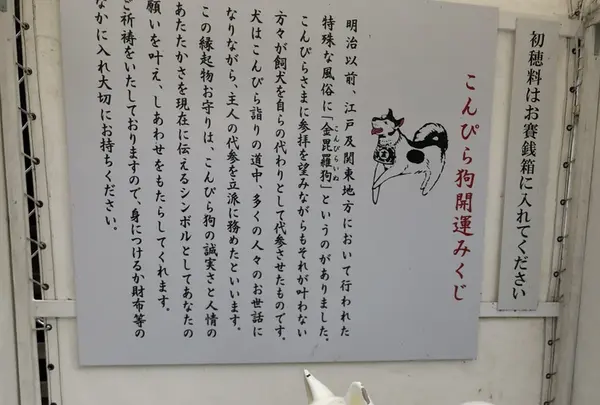 初穂料はお賽銭箱に入れてください
こんぴら狗開運みくじ
明治以前、江戸及関東地方において行われた
特殊な風俗に「金毘羅狗」というのがありました。
こんぴらいぬ
こんぴらさまに参拝を望みながらもそれが叶わない
方々が飼犬を自らの代わりとして代参させたものです。
犬はこんぴら詣りの道中、多くの人々のお世話に
なりながら、主人の代参を立派に務めたといいます。
この縁起物お守りは、こんぴら狗の誠実さと人情の
あたたかさを現在に伝えるシンボルとしてあなたの
願いを叶え、しあわせをもたらしてくれます。
ご祈祷をいたしておりますので、身につけるか財布等の
なかに入れ大切にお持ちください。